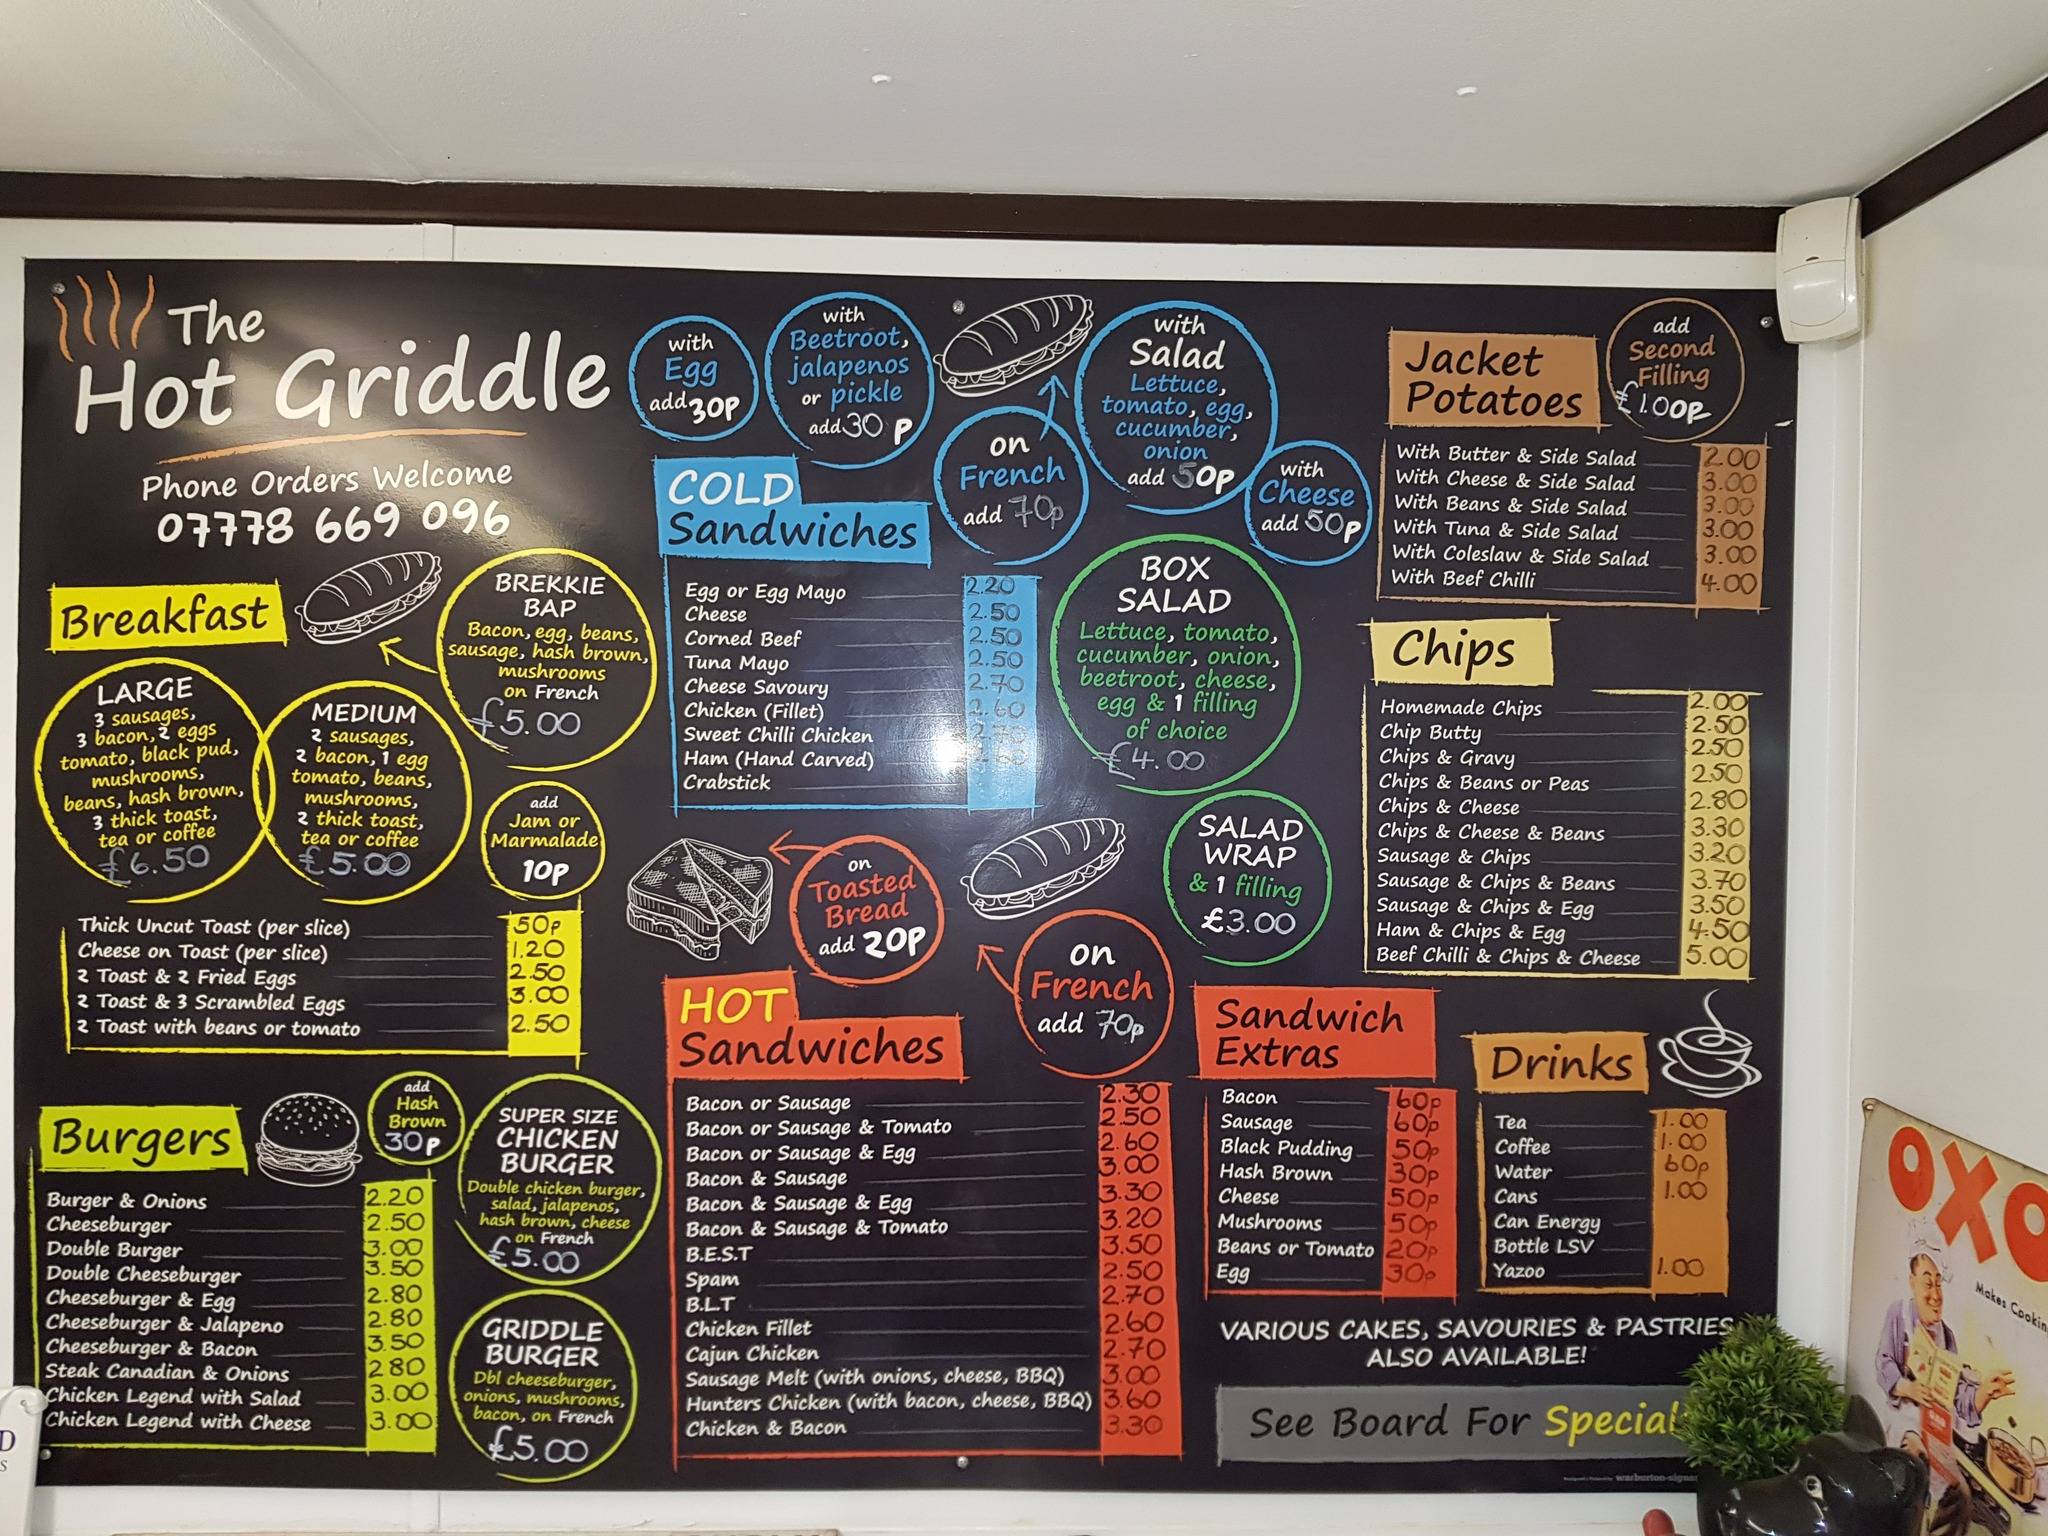 The
Hot Griddle
Phone Orders Welcome
07778 669 096
Breakfast
BREKKIE
BAP
Bacon, egg, beans,
sausage, hash brown,
mushrooms
on French
£5.00
LARGE
3 sausages,
3 bacon, 2 eggs
tomato, black pud,
mushrooms,
beans, hash brown,
3 thick toast,
tea or coffee
£6.50
MEDIUM
2 sausages,
2 bacon, 1 egg
tomato, beans,
mushrooms,
2 thick toast,
tea or coffee
£5.00
add
Jam or
Marmalade
10p
Thick Uncut Toast (per slice) 50p
Cheese on Toast (per slice) 1.20
2 Toast & 2 Fried Eggs 2.50
2 Toast & 3 Scrambled Eggs 3.00
2 Toast with beans or tomato 2.50
Burgers
add
Hash
Brown
30p
Burger & Onions 2.20
Cheeseburger 2.50
Double Burger 3.00
Double Cheeseburger 3.50
Cheeseburger & Egg 2.80
Cheeseburger & Jalapeno 2.80
Cheeseburger & Bacon 3.50
Steak Canadian & Onions 2.80
Chicken Legend with Salad 3.00
Chicken Legend with Cheese 3.00
SUPER SIZE
CHICKEN
BURGER
Double chicken burger,
salad, jalapenos,
hash brown, cheese
on French
£5.00
GRIDDLE
BURGER
Dbl cheeseburger,
onions, mushrooms,
bacon, on French
£5.00
with
Egg
add 30p
with
Beetroot,
jalapenos
or pickle
add 30 p
on
French
add 70p
with
Salad
Lettuce,
tomato, egg,
cucumber,
onion
add 50p
with
Cheese
add 50p
COLD
Sandwiches
Egg or Egg Mayo 2.20
Cheese 2.50
Corned Beef 2.50
Tuna Mayo 2.50
Cheese Savoury 2.70
Chicken (Fillet) 2.60
Sweet Chilli Chicken
Ham (Hand Carved)
Crabstick
BOX
SALAD
Lettuce, tomato,
cucumber, onion,
beetroot, cheese,
egg & 1 filling
of choice
£4.00
SALAD
WRAP
& 1 filling
£3.00
on
Toasted
Bread
add 20p
on
French
add 70p
HOT
Sandwiches
Bacon or Sausage 2.30
Bacon or Sausage & Tomato 2.50
Bacon or Sausage & Egg 2.60
Bacon & Sausage 3.00
Bacon & Sausage & Egg 3.30
Bacon & Sausage & Tomato 3.20
B.E.S.T 3.50
Spam 2.50
B.L.T 2.70
Chicken Fillet 2.60
Cajun Chicken 2.70
Sausage Melt (with onions, cheese, BBQ) 3.00
Hunters Chicken (with bacon, cheese, BBQ) 3.60
Chicken & Bacon 3.30
Jacket
Potatoes
add
Second
Filling
£1.00p
With Butter & Side Salad 2.00
With Cheese & Side Salad 3.00
With Beans & Side Salad 3.00
With Tuna & Side Salad 3.00
With Coleslaw & Side Salad 3.00
With Beef Chilli 4.00
Chips
Homemade Chips 2.00
Chip Butty 2.50
Chips & Gravy 2.50
Chips & Beans or Peas 2.50
Chips & Cheese 2.80
Chips & Cheese & Beans 3.30
Sausage & Chips 3.20
Sausage & Chips & Beans 3.70
Sausage & Chips & Egg 3.50
Ham & Chips & Egg 4.50
Beef Chilli & Chips & Cheese 5.00
Sandwich
Extras
Bacon 60p
Sausage 60p
Black Pudding 50p
Hash Brown 30p
Cheese 50p
Mushrooms 50p
Beans or Tomato 20p
Egg 30p
Drinks
Tea 1.00
Coffee 1.00
Water 60p
Cans 1.00
Can Energy
Bottle LSV
Yazoo 1.00
VARIOUS CAKES, SAVOURIES & PASTRIES
ALSO AVAILABLE!
See Board For Special
warburton-signs
OXO
Makes Cooking